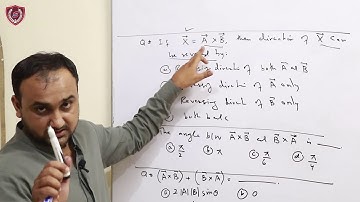 Q= If X⃗ = A⃗ × B⃗, then direction of X⃗ can
be reversed by:
(a) Reversing direction of both A⃗ and B⃗
Reversing direction of A⃗ only
Reversing B⃗ only
Both b and c
The angle b/w A⃗×B⃗ and B⃗×A⃗ is __
(a) π/2 (b) π (c) π/6 (d) π/4
Q= (A⃗×B⃗) + (B⃗×A⃗) = ______
(a) 2|A||B| sinθ (b) 0